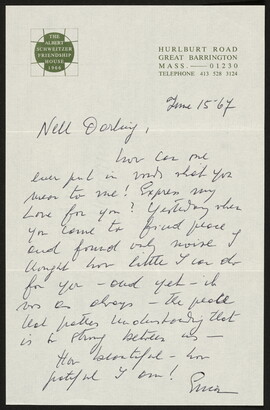 THE
ALBERT
SCHWEITZER
FRIENDSHIP
HOUSE
1966
HURLBURT ROAD
GREAT BARRINGTON
MASS. — 01230
TELEPHONE 413 528 3124
June 15 · 67
Nell Darling,
how can one
ever put in words what you
mean to me! Express my
love for you? Yesterday when
you came to find peace
and found only noise I
thought how little I can do
for you – and yet – it
was as always – the peace
that passes understanding that
is so strong between us —
How beautiful – how
grateful I am! Erica